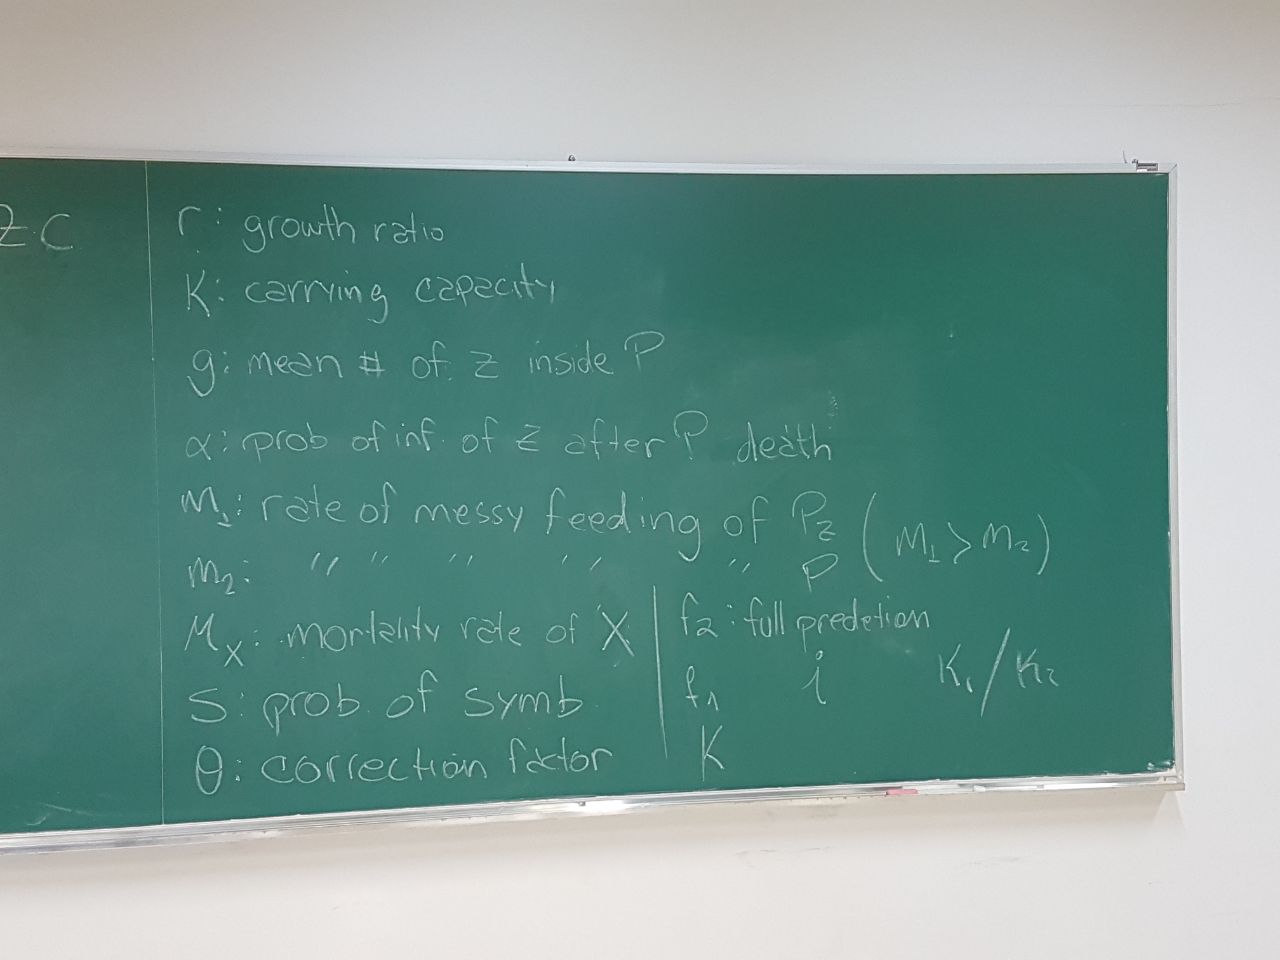 Z C
r: growth ratio
K: carrying capacity
g: mean # of z inside P
α: prob of inf. of z after P death
M₁: rate of messy feeding of P_z (M₁ > m₂)
m₂: " " " " " P
M_X: mortality rate of X
S: prob. of symb
θ: correction factor
f₂: full predetion
f₁ i K₁/K₂
K